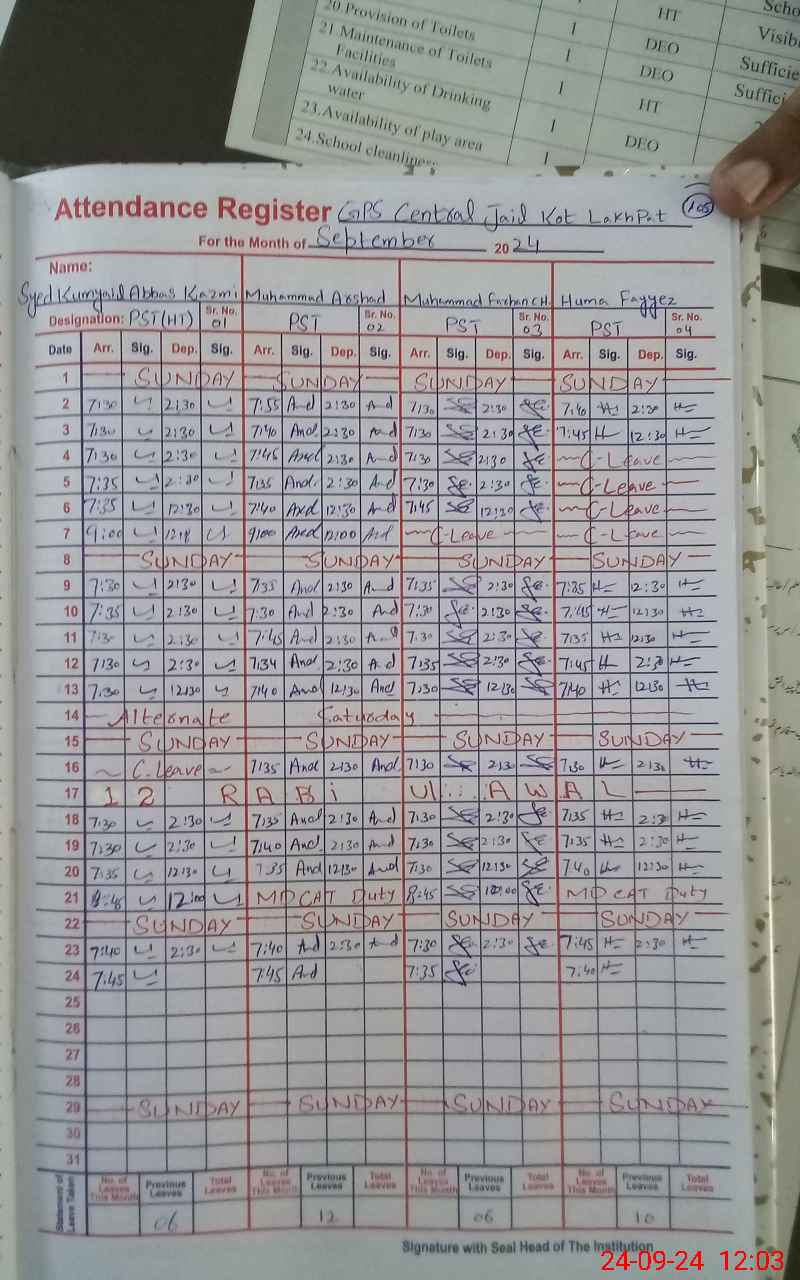 20.Provision of Toilets 1 HT
21.Maintenance of Toilets Facilities 1 DEO
22.Availability of Drinking water 1 DEO
23.Availability of play area 1 HT
24.School cleanliness 1 DEO
Attendance Register GPS Central Jail Kot LakhPat 105
For the Month of September 2024
Name:
Syed Kumyail Abbas Kazmi Muhammad Arshad Muhammad Farhan CH. Huma Fayyez
Designation: PST(HT) Sr. No. 01 PST Sr. No. 02 PST Sr. No. 03 PST Sr. No. 04
Date Arr. Sig. Dep. Sig. Arr. Sig. Dep. Sig. Arr. Sig. Dep. Sig. Arr. Sig. Dep. Sig.
1 SUNDAY SUNDAY SUNDAY SUNDAY
2 7:30 2:30 7:55 2:30 7:30 2:30 7:40 2:30
3 7:30 2:30 7:40 2:30 7:30 2:30 7:45 12:30
4 7:30 2:30 7:45 2:30 7:30 2:30 C-Leave
5 7:35 2:30 7:35 2:30 7:30 2:30 C-Leave
6 7:35 12:30 7:40 12:30 7:45 12:30 C-Leave
7 9:00 9:00 12:00 C-Leave C-Leave
8 SUNDAY SUNDAY SUNDAY SUNDAY
9 7:30 2:30 7:35 2:30 7:35 2:30 7:35 2:30
10 7:35 2:30 7:30 2:30 7:30 2:30 7:45 12:30
11 7:30 2:30 7:45 2:30 7:30 2:30 7:35 12:30
12 7:30 2:30 7:34 2:30 7:35 2:30 7:45 2:30
13 7:30 12:30 7:40 12:30 7:30 12:30 7:40 12:30
14 Alternate Saturday
15 SUNDAY SUNDAY SUNDAY SUNDAY
16 C.Leave 7:35 2:30 7:30 2:30 7:30 2:30
17 12 RABi Ul AWAL
18 7:30 2:30 7:35 2:30 7:30 2:30 7:35 2:30
19 7:30 2:30 7:40 2:30 7:30 2:30 7:35 2:30
20 7:35 12:30 7:35 12:30 7:30 12:30 7:40 12:30
21 8:45 12:00 MDCAT Duty 8:45 MDCAT Duty
22 SUNDAY SUNDAY SUNDAY SUNDAY
23 7:40 2:30 7:40 2:30 7:30 2:30 7:45 2:30
24 7:45 7:45 7:35 7:40
25
26
27
28
29 SUNDAY SUNDAY SUNDAY SUNDAY
30
31
Statement of Leave Taken No. of Leaves This Month Previous Leaves Total Leaves No. of Leaves This Month Previous Leaves Total Leaves No. of Leaves This Month Previous Leaves Total Leaves No. of Leaves This Month Previous Leaves Total Leaves
06 12 06 10
Signature with Seal Head of The Institution
24-09-24 12:03